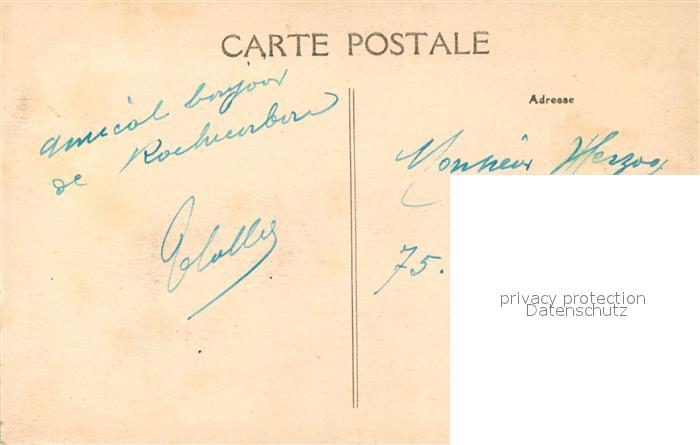 CARTE POSTALE
amical bonjour
de Rochecorbon
Adresse
Monsieur Herzog
75.
privacy protection
Datenschutz